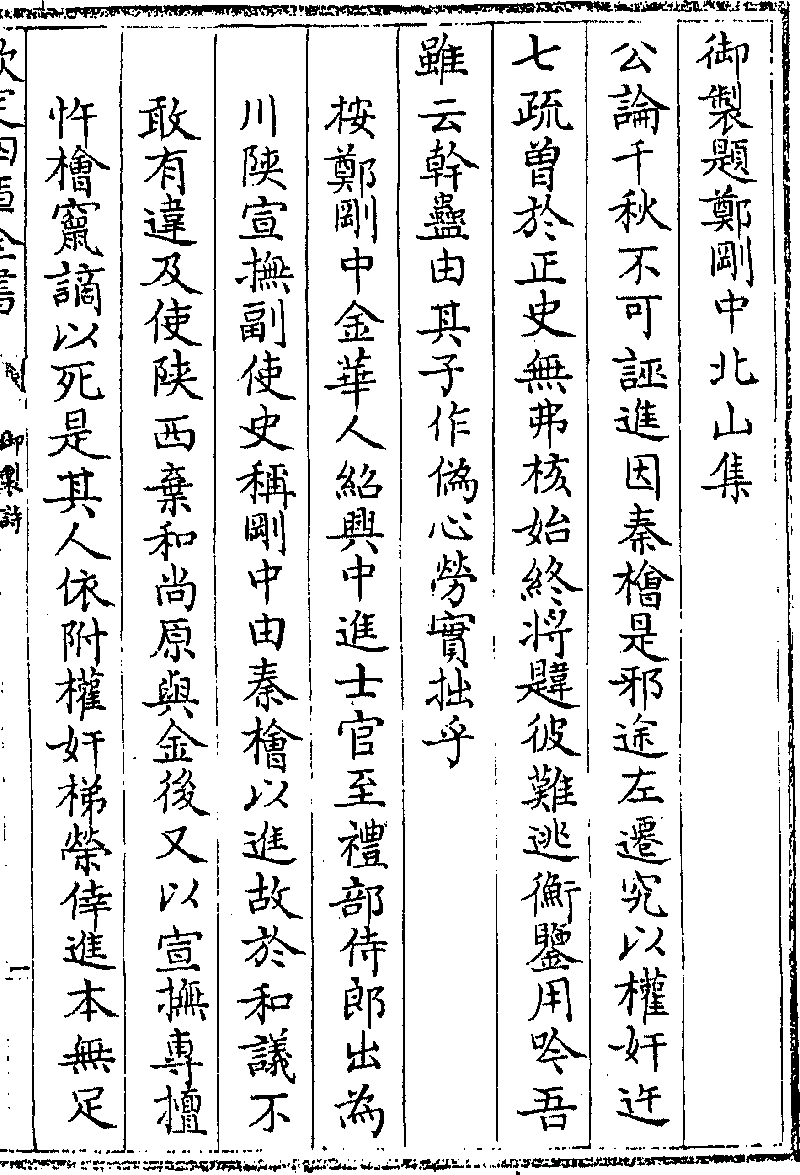 御製題鄭剛中北山集
公論千秋不可誣進因秦檜是邪途左遷究以權奸迕
七疏曾於正史無弗核始終將韙彼難逃衡鑒用吟吾
雖云幹蠱由其子作偽心勞實拙乎
桉鄭剛中金華人紹興中進士官至禮部侍郎出為
川陜宣撫副使史稱剛中由秦檜以進故於和議不
敢有違及使陜西棄和尚原與金後又以宣撫專擅
忤檜竄謫以死是其人依附權奸梯榮倖進本無足
欽定四庫全書
御製詩
一